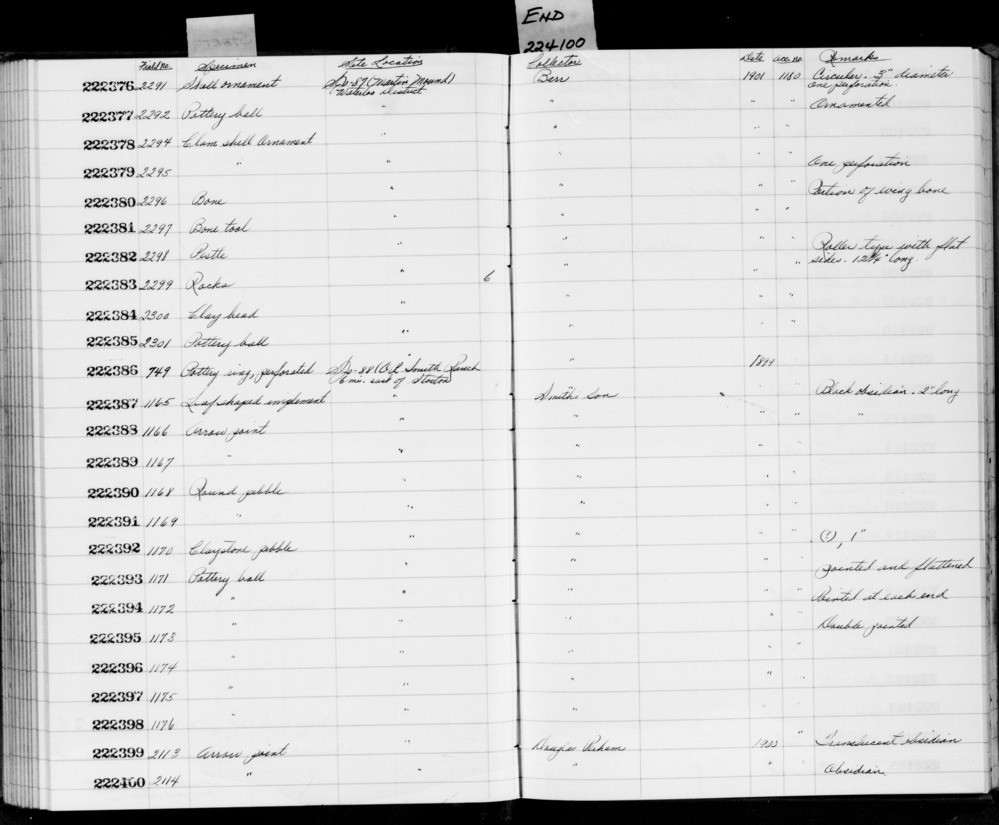 END
224100
Field No. Specimen Site Location Collector Date acc. no. Remarks
222376 2291 Shell ornament SJo-87 (Martin Mound) Barr 1901 1180 Circular. 3" diameter
Waterloo District one perforation.
222377 2292 Pottery ball " " " " Ornamented
222378 2294 Clam shell Ornament " " " "
222379 2295 " " " " " One perforation
222380 2296 Bone " " " " Portion of wing bone
222381 2297 Bone tool " " " "
222382 2298 Pestle " " " " Roller type with flat
sides. 12¼" long.
222383 2299 Rocks " 6 " " "
222384 2300 Clay bead " " " "
222385 2301 Pottery ball " " " "
222386 749 Pottery ring, perforated SJo-88 ( Smith Ranch " 1899
6 mi. east of Stockton
222387 1165 Leaf shaped implement " Smith's Son " " Black obsidian. 2" long
222388 1166 Arrow point " " " " "
222389 1167 " " " " "
222390 1168 Round pebble " " " "
222391 1169 " " " " "
222392 1170 Claystone pebble " " " " (?), 1"
222393 1171 Pottery ball " " " " Pointed and flattened
222394 1172 " " " " " Pointed at each end
222395 1173 " " " " " Double pointed
222396 1174 " " " " "
222397 1175 " " " " "
222398 1176 " " " " "
222399 2113 Arrow point " Douglas 1933 " Translucent obsidian
222400 2114 " " " " " Obsidian.